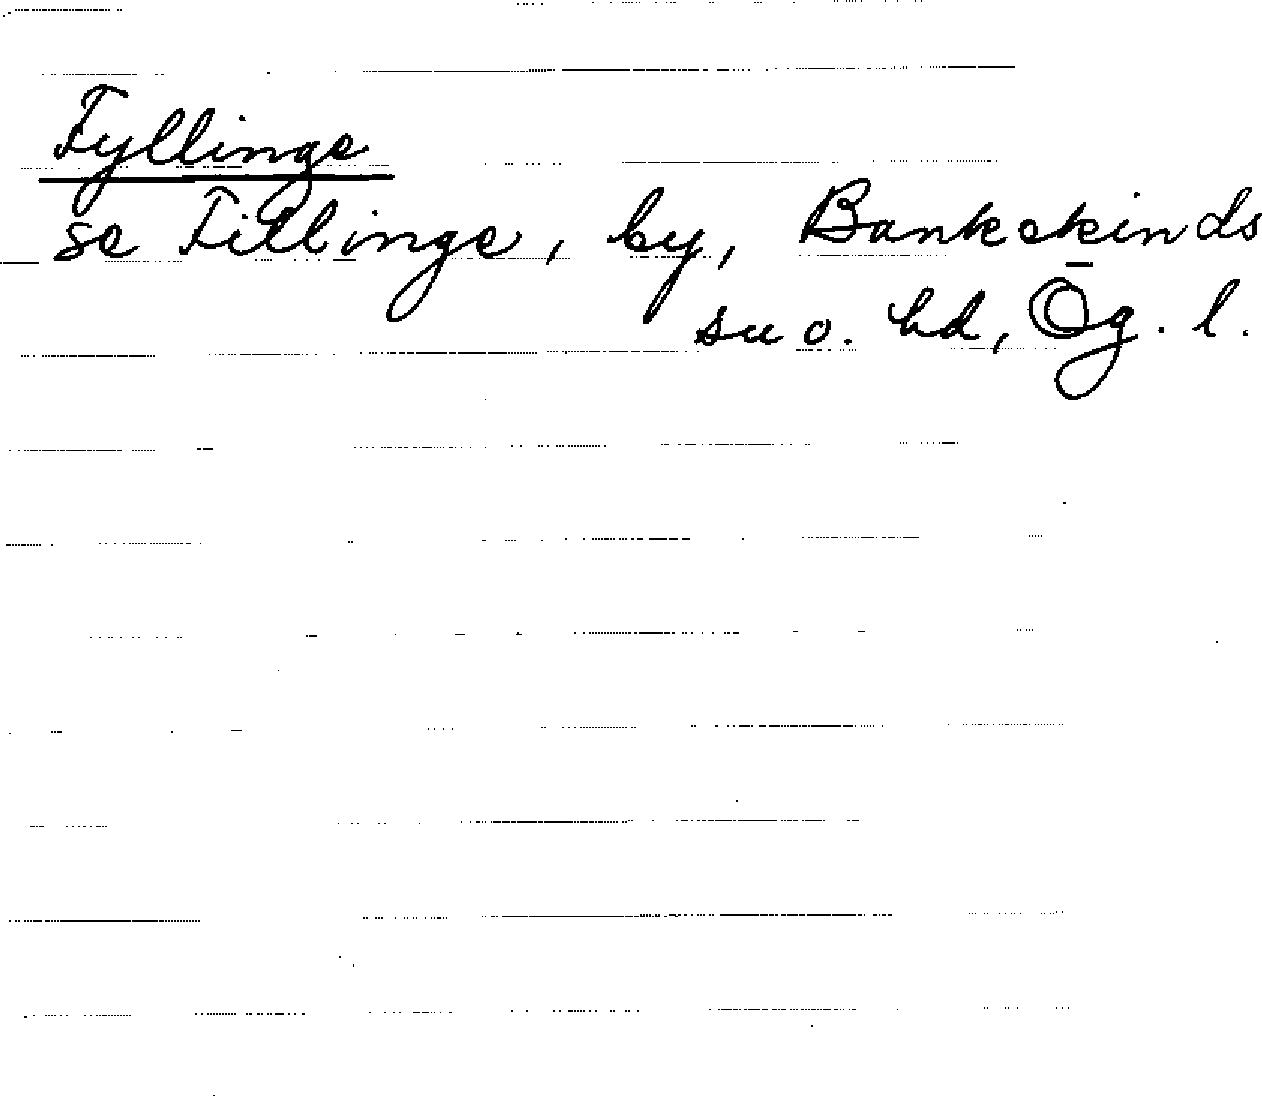 Tyllinge
se Tillinge, by, Bankekinds
su o. hd, Ög. l.